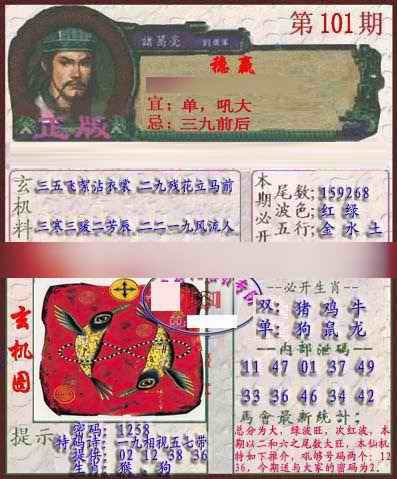 第101期
諸葛亮
劉備軍
穩贏
宜：单，吼大
忌：三九前后
正版
玄机料
三五飞絮沾衣裳 二九残花立马前
三寒三暖二芳辰 二二一九风流人
本期必开
尾数:159268
波色:红 绿
五行:金 水 土
玄机图
必开生肖
双: 猪 鸡 牛
单: 狗 鼠 龙
内部泄码
11 47 01 37 49
33 36 46 34 42
馬會最新統計:
总分为大，绿波旺，次红波，本期以二和六之尾数大旺，本仙机特如下推介，吼够号码两个：1236，今期送与大家的密码为2.
提示
密码: 1258
特码诗: 一九相视五七带
提倍: 02 12 38 36
生肖: 猴 . 狗